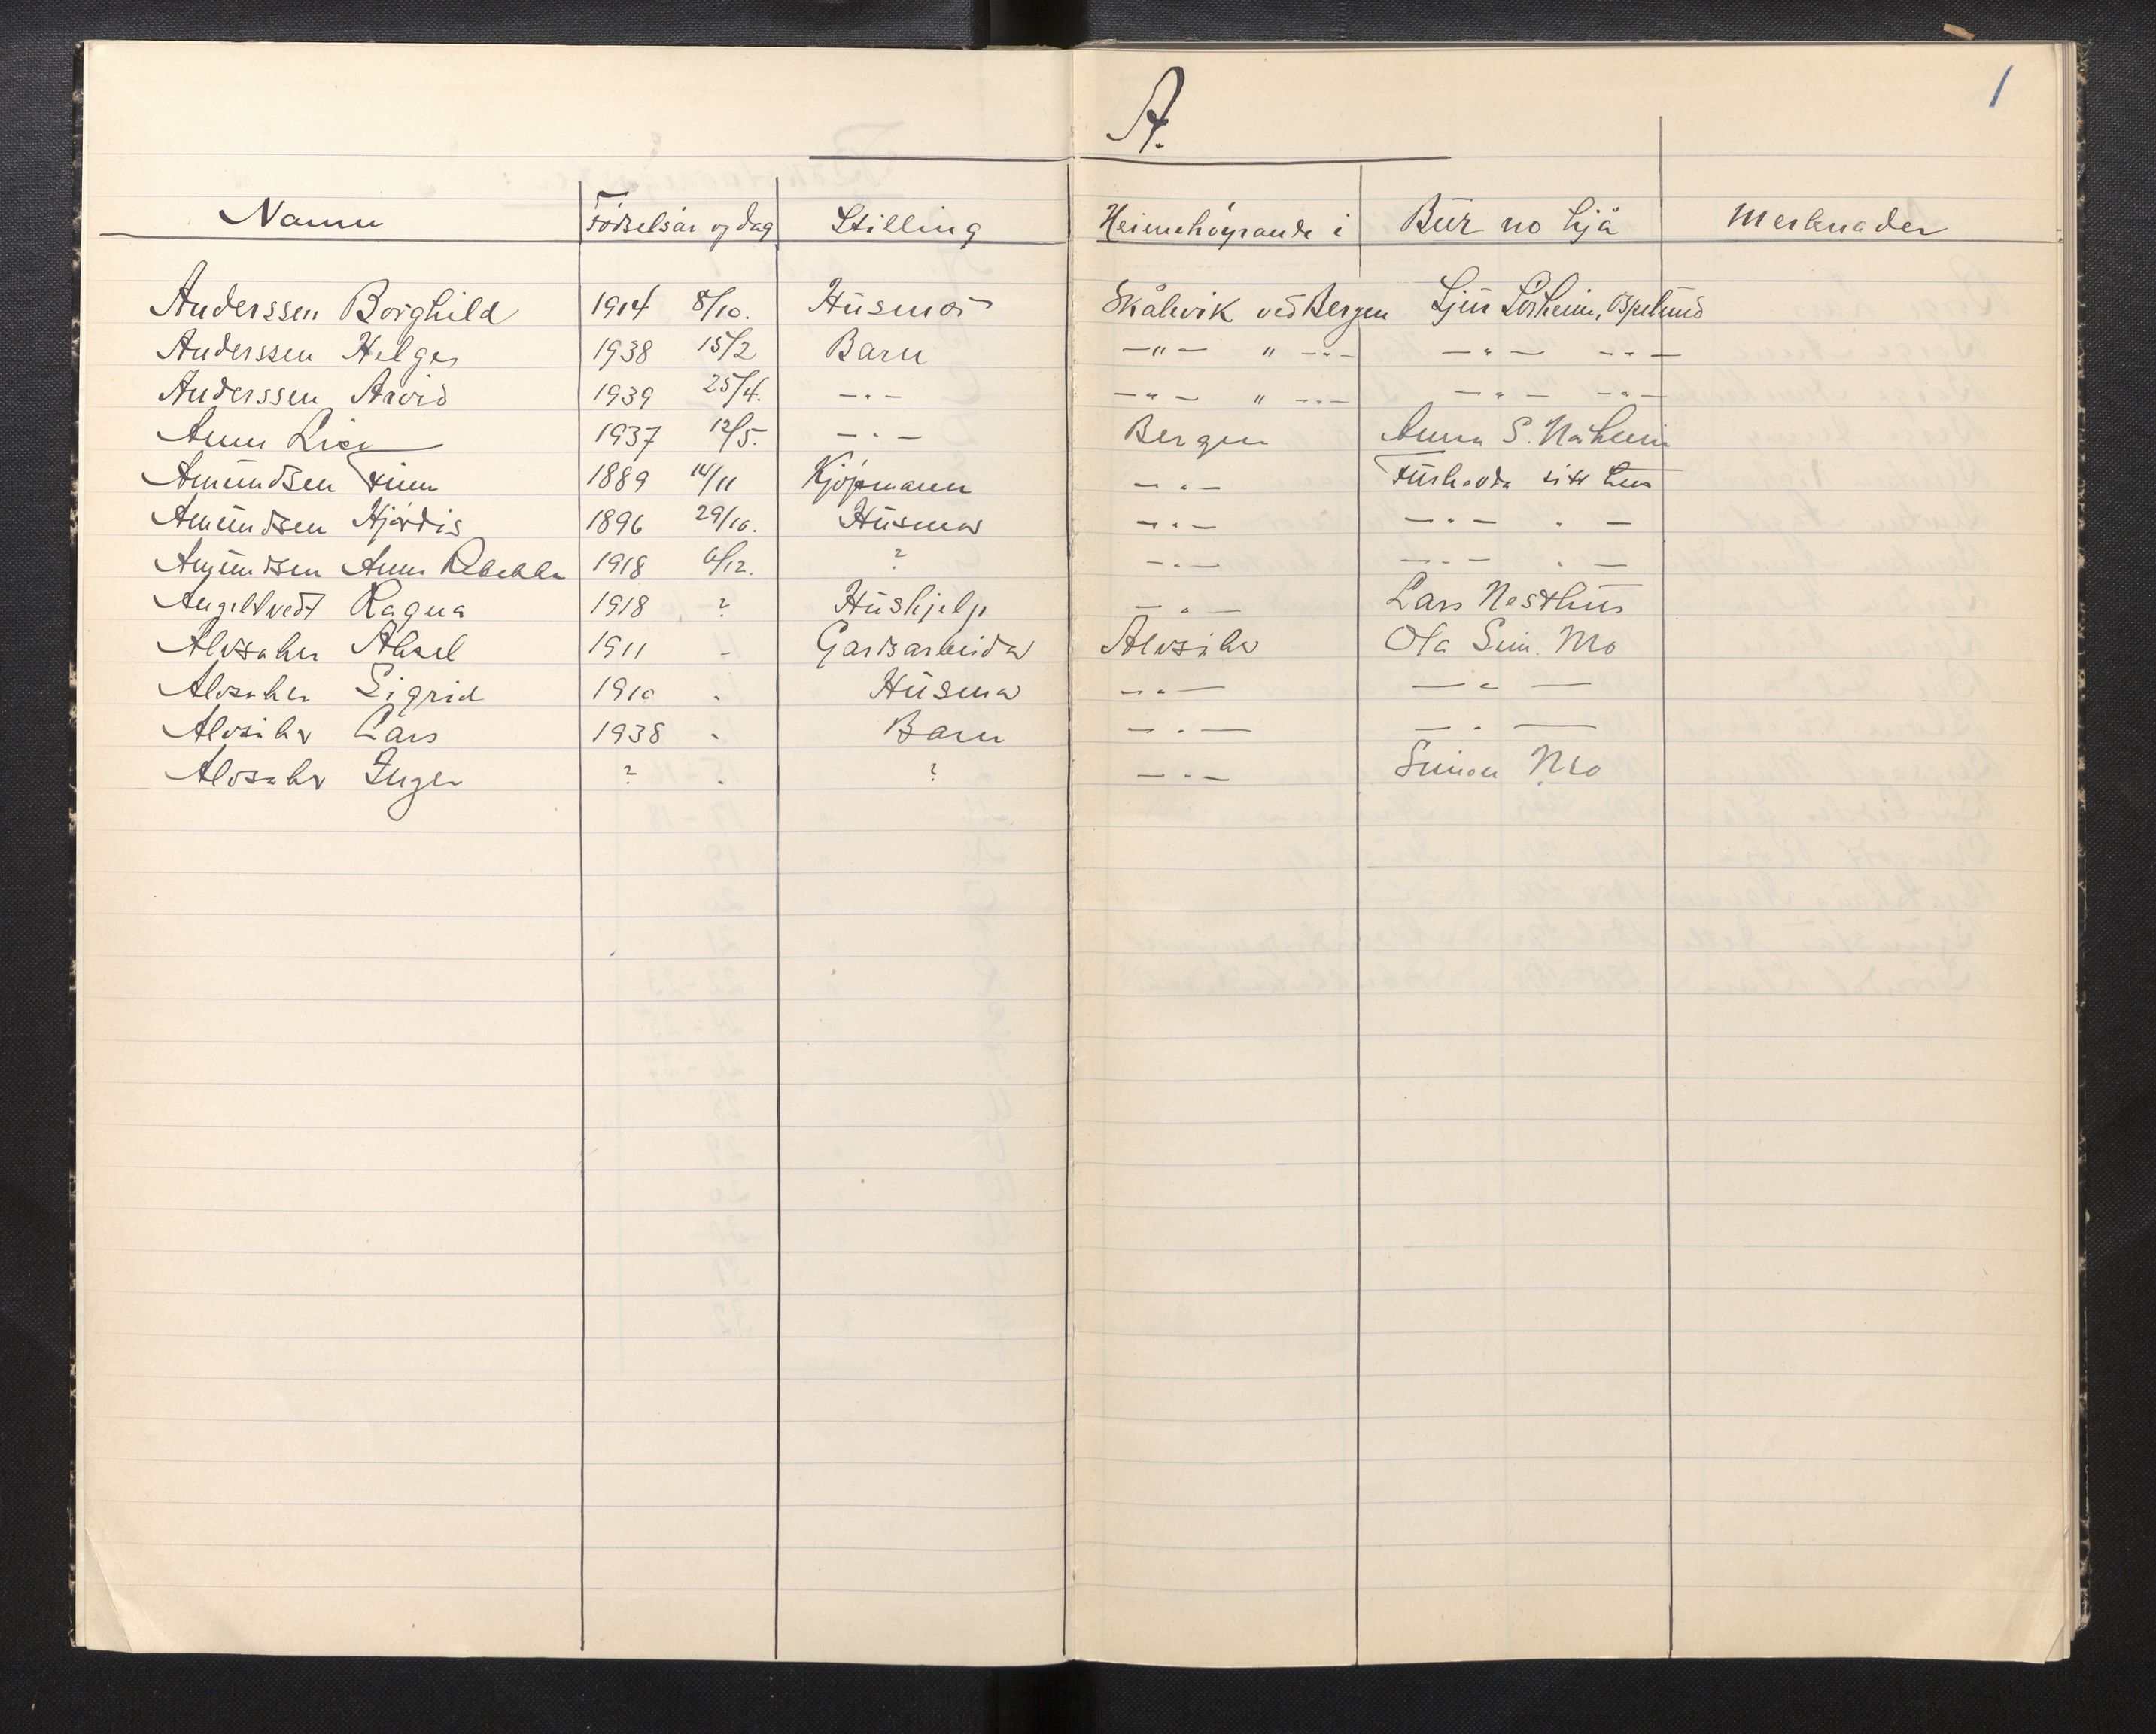 A.
1
Namn Födselsår og dag Stilling Heimehøyrande i Bur no hjå Merknader
Anderssen Borghild 1914 8/10. Husmor Skålvik ved Bergen Sjur Lòsheim, Ospelund
Anderssen Helge 1938 15/2 Barn —"— " —"— —"— —"—
Anderssen Arvid 1939 25/4. —"— —"— " —"— —"— —"—
Anne Lise 1937 12/5. —"— Bergen Anna S. Nåheim
Amundsen Finn 1889 14/11 Kjøpmann —"— Furhovda sitt hus
Amundsen Hjørdis 1896 29/10. Husmor —"— —"— " —
Amundsen Anne Rebekka 1918 6/12. ? —"— —"— " —
Angeltvedt Ragna 1918 ? Hushjelp —"— Lars Nesthus
Alvsåker Aksel 1911 - Gardsarbeidar Alvsåker Ola Sim. Mo
Alvsåker Sigrid 1910 " Husmor —"— —"—
Alvsåker Lars 1938 " Barn —"— —"—
Alvsåker Inger ? " ? —"— Simon Mo